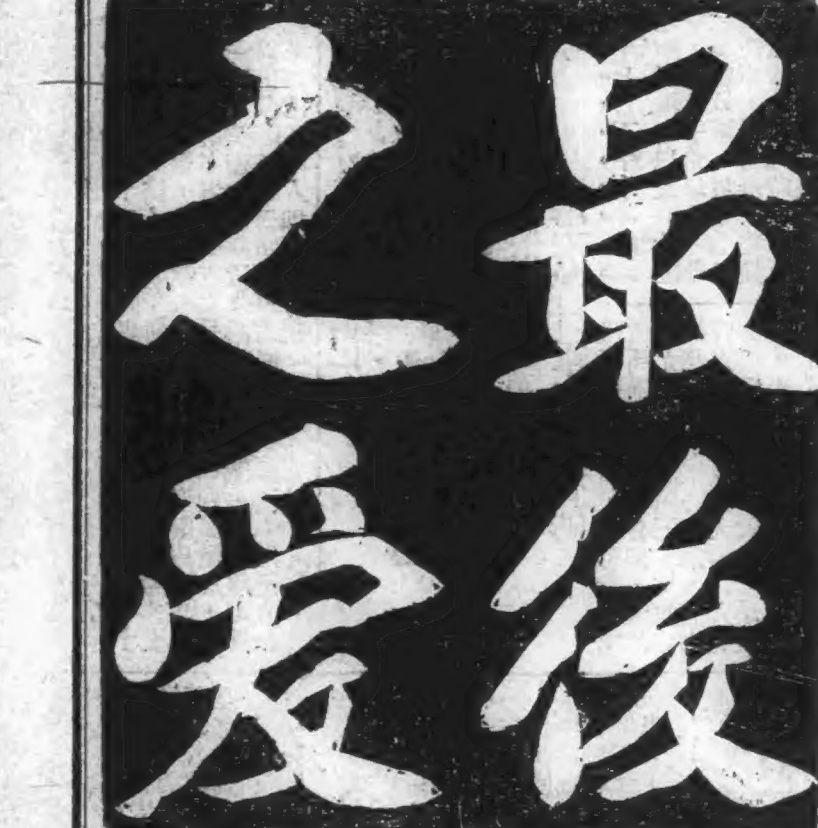 最後
之爱